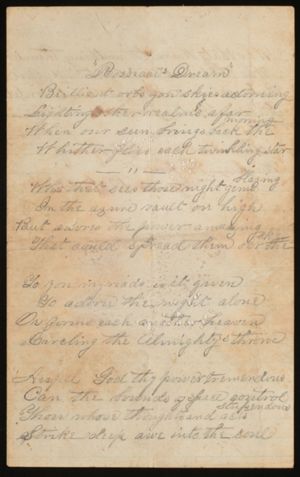 "Rosseau's Dream"
Brilliant orbs yon skies adorning
Lighting other realms afar
When our sun brings back the morning
Whither flies each twinkling star
"
Who that sees those night gems blazing
In the azure vault on high
But owns the power amazing
That could spread them o'er the sky
To you myriads is it given
To adore the night alone
Or gems each another heaven
Circling the Almighty's throne
God thy power tremendous
Can the bounds of space control
Thou whose thought and acts stupendous
Strike deep awe into the soul